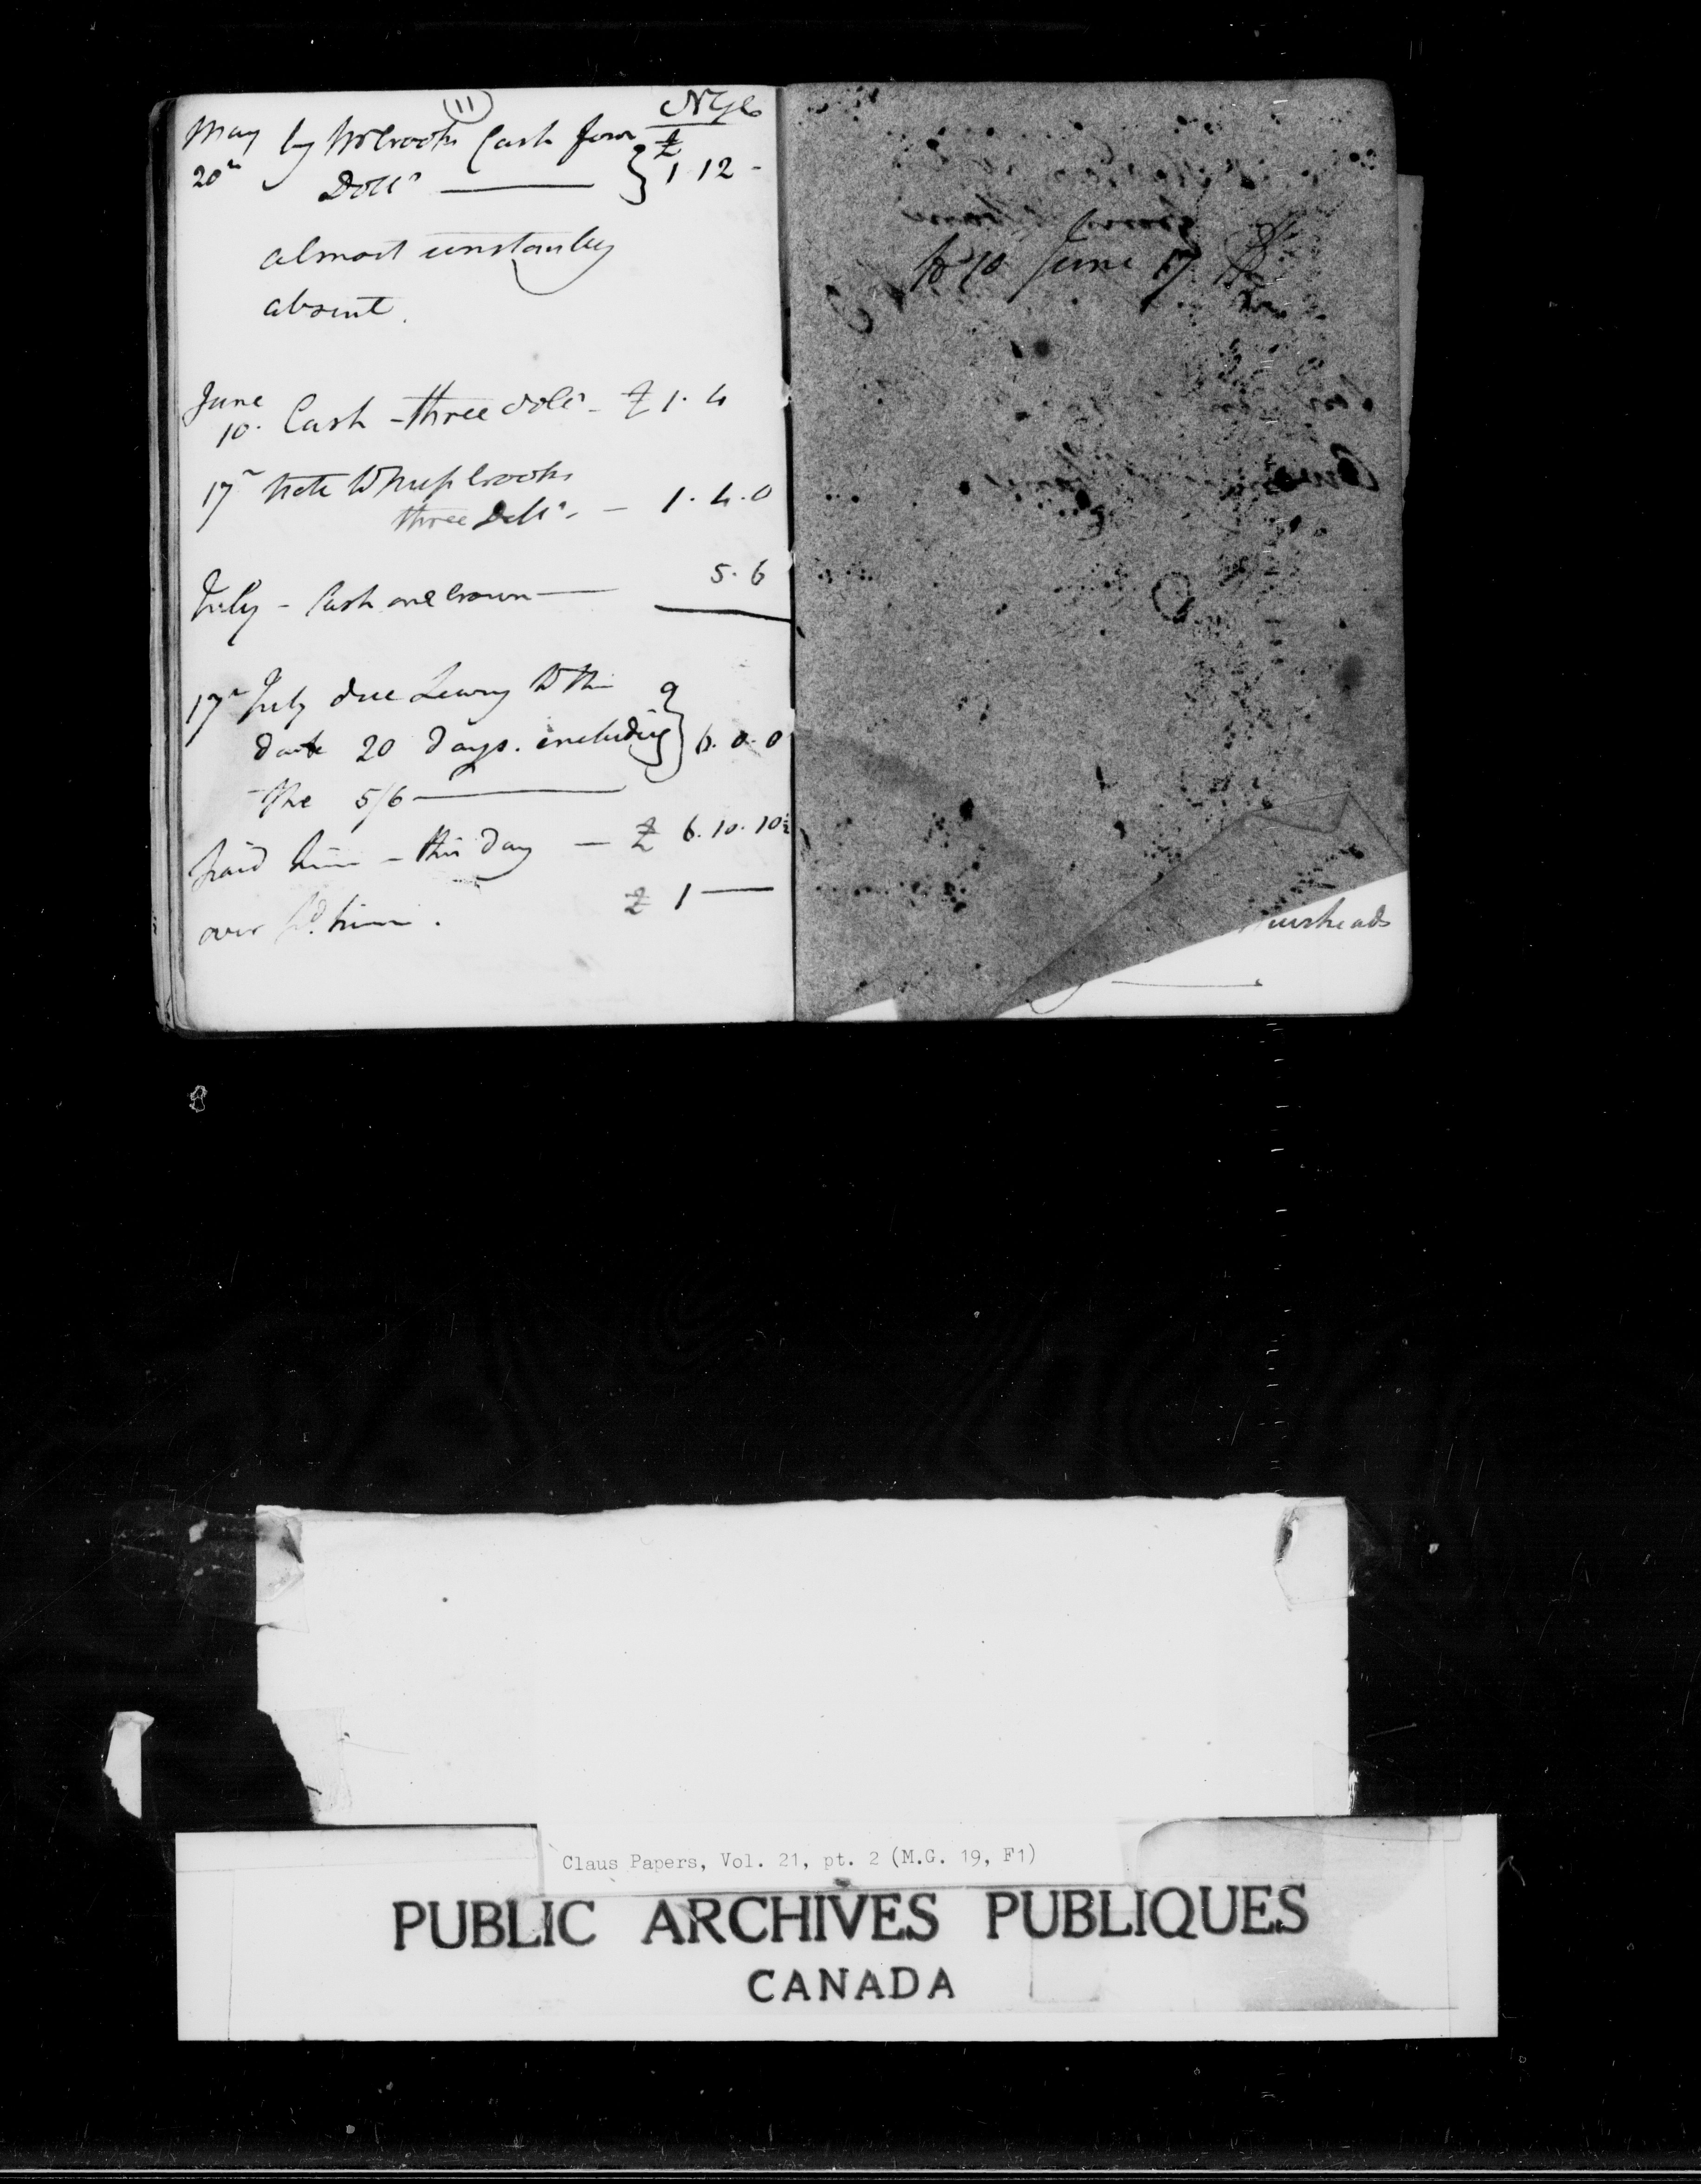 (11)
NYC
£
May by Mr Crooks Cash four
20th Dolls — } 1 12 -
almost constantly
absent.
June
10. Cash - three dolls - £ 1. 4
17th note to Messrs Crooks
three Dolls. — 1. 4. 0
July - Cash one crown — 5. 6
17th July due Lewey to this
date 20 days. including } 6. 0. 0
the 5/6 —
paid him - this day — £ 6. 10. 10½
over pd. him. £ 1 —
to 10 June 17
uirheads
Claus Papers, Vol. 21, pt. 2 (M.G. 19, F1)
PUBLIC ARCHIVES PUBLIQUES
CANADA